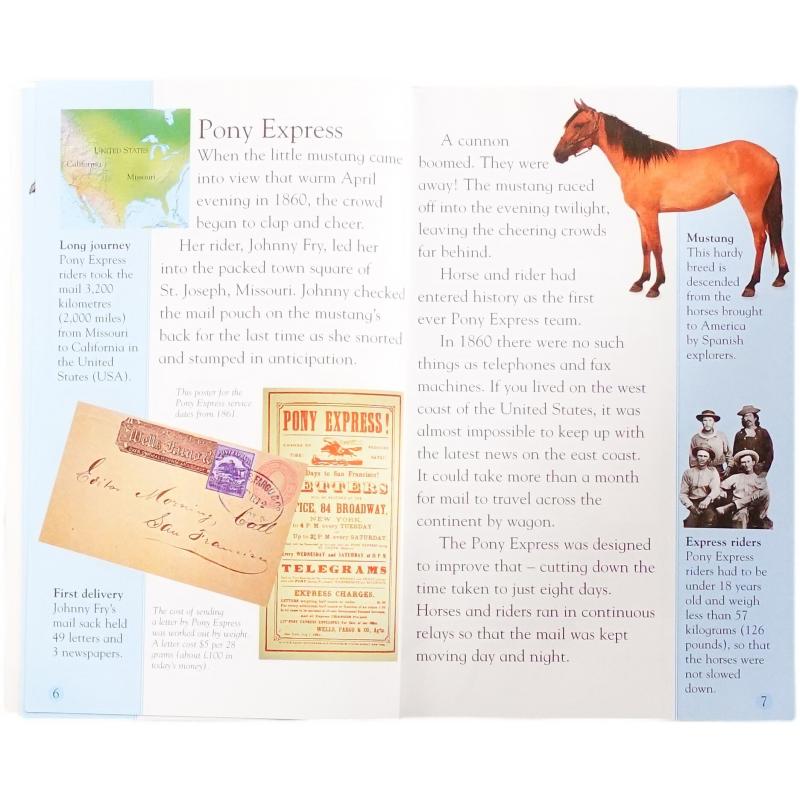 UNITED STATES
California
Missouri
Long journey
Pony Express
riders took the
mail 3,200
kilometres
(2,000 miles)
from Missouri
to California in
the United
States (USA).
Pony Express
When the little mustang came
into view that warm April
evening in 1860, the crowd
began to clap and cheer.
Her rider, Johnny Fry, led her
into the packed town square of
St. Joseph, Missouri. Johnny checked
the mail pouch on the mustang's
back for the last time as she snorted
and stamped in anticipation.
This poster for the
Pony Express service
dates from 1861.
Wells Fargo
PONY EXPRESS
Editor Morning Call
San Francisco
PONY EXPRESS!
CHANGE OF
TIME!
REDUCED
RATES!
Days to San Francisco!
LETTERS
OFFICE, 84 BROADWAY,
NEW YORK,
to 4 P.M. every TUESDAY
Up to 2½ P.M. every SATURDAY
Every WEDNESDAY and SATURDAY at 11 P.M.
TELEGRAMS
EXPRESS CHARGES.
WELLS, FARGO & CO., Ag'ts
First delivery
Johnny Fry's
mail sack held
49 letters and
3 newspapers.
The cost of sending
a letter by Pony Express
was worked out by weight.
A letter cost $5 per 28
grams (about £100 in
today's money).
6
A cannon
boomed. They were
away! The mustang raced
off into the evening twilight,
leaving the cheering crowds
far behind.
Horse and rider had
entered history as the first
ever Pony Express team.
In 1860 there were no such
things as telephones and fax
machines. If you lived on the west
coast of the United States, it was
almost impossible to keep up with
the latest news on the east coast.
It could take more than a month
for mail to travel across the
continent by wagon.
The Pony Express was designed
to improve that – cutting down the
time taken to just eight days.
Horses and riders ran in continuous
relays so that the mail was kept
moving day and night.
Mustang
This hardy
breed is
descended
from the
horses brought
to America
by Spanish
explorers.
Express riders
Pony Express
riders had to be
under 18 years
old and weigh
less than 57
kilograms (126
pounds), so that
the horses were
not slowed
down.
7